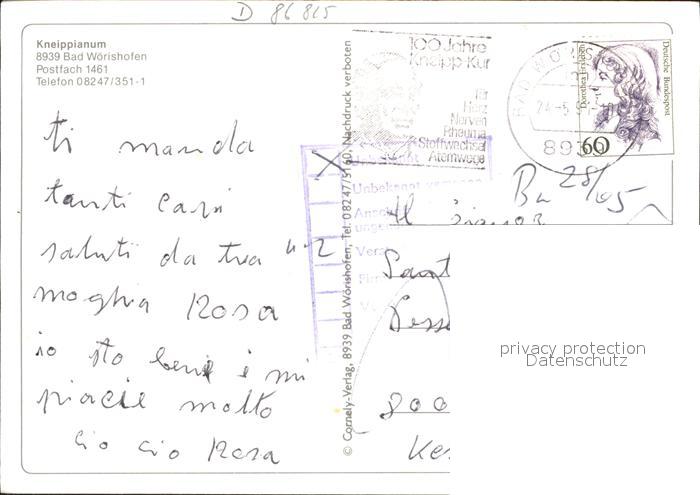 D 86815
Kneippianum
8939 Bad Wörishofen
Postfach 1461
Telefon 08247/351-1
ti manda
tanti cari
saluti da tua
moghia Rosa
io sto bene e mi
piacie molto
cio cio Rosa
© Cornely-Verlag, 8939 Bad Wörishofen, Tel. 08247/5160, Nachdruck verboten
100 Jahre
Kneipp-Kur
für
Herz
Nerven
Rheuma
Stoffwechsel
Atemwege
BAD WÖRIS
24.-5
8939
Dorothea Erxleben
Deutsche Bundespost
60
Unbekannt
28/05
Il signor
Sant
800
privacy protection
Datenschutz